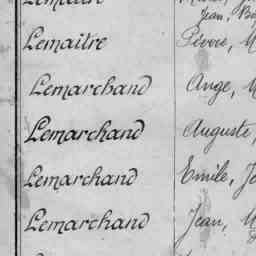 Jean,
Lemaitre
Lemarchand Ange, M
Lemarchand Auguste,
Lemarchand Emile, Je
Lemarchand Jean, M